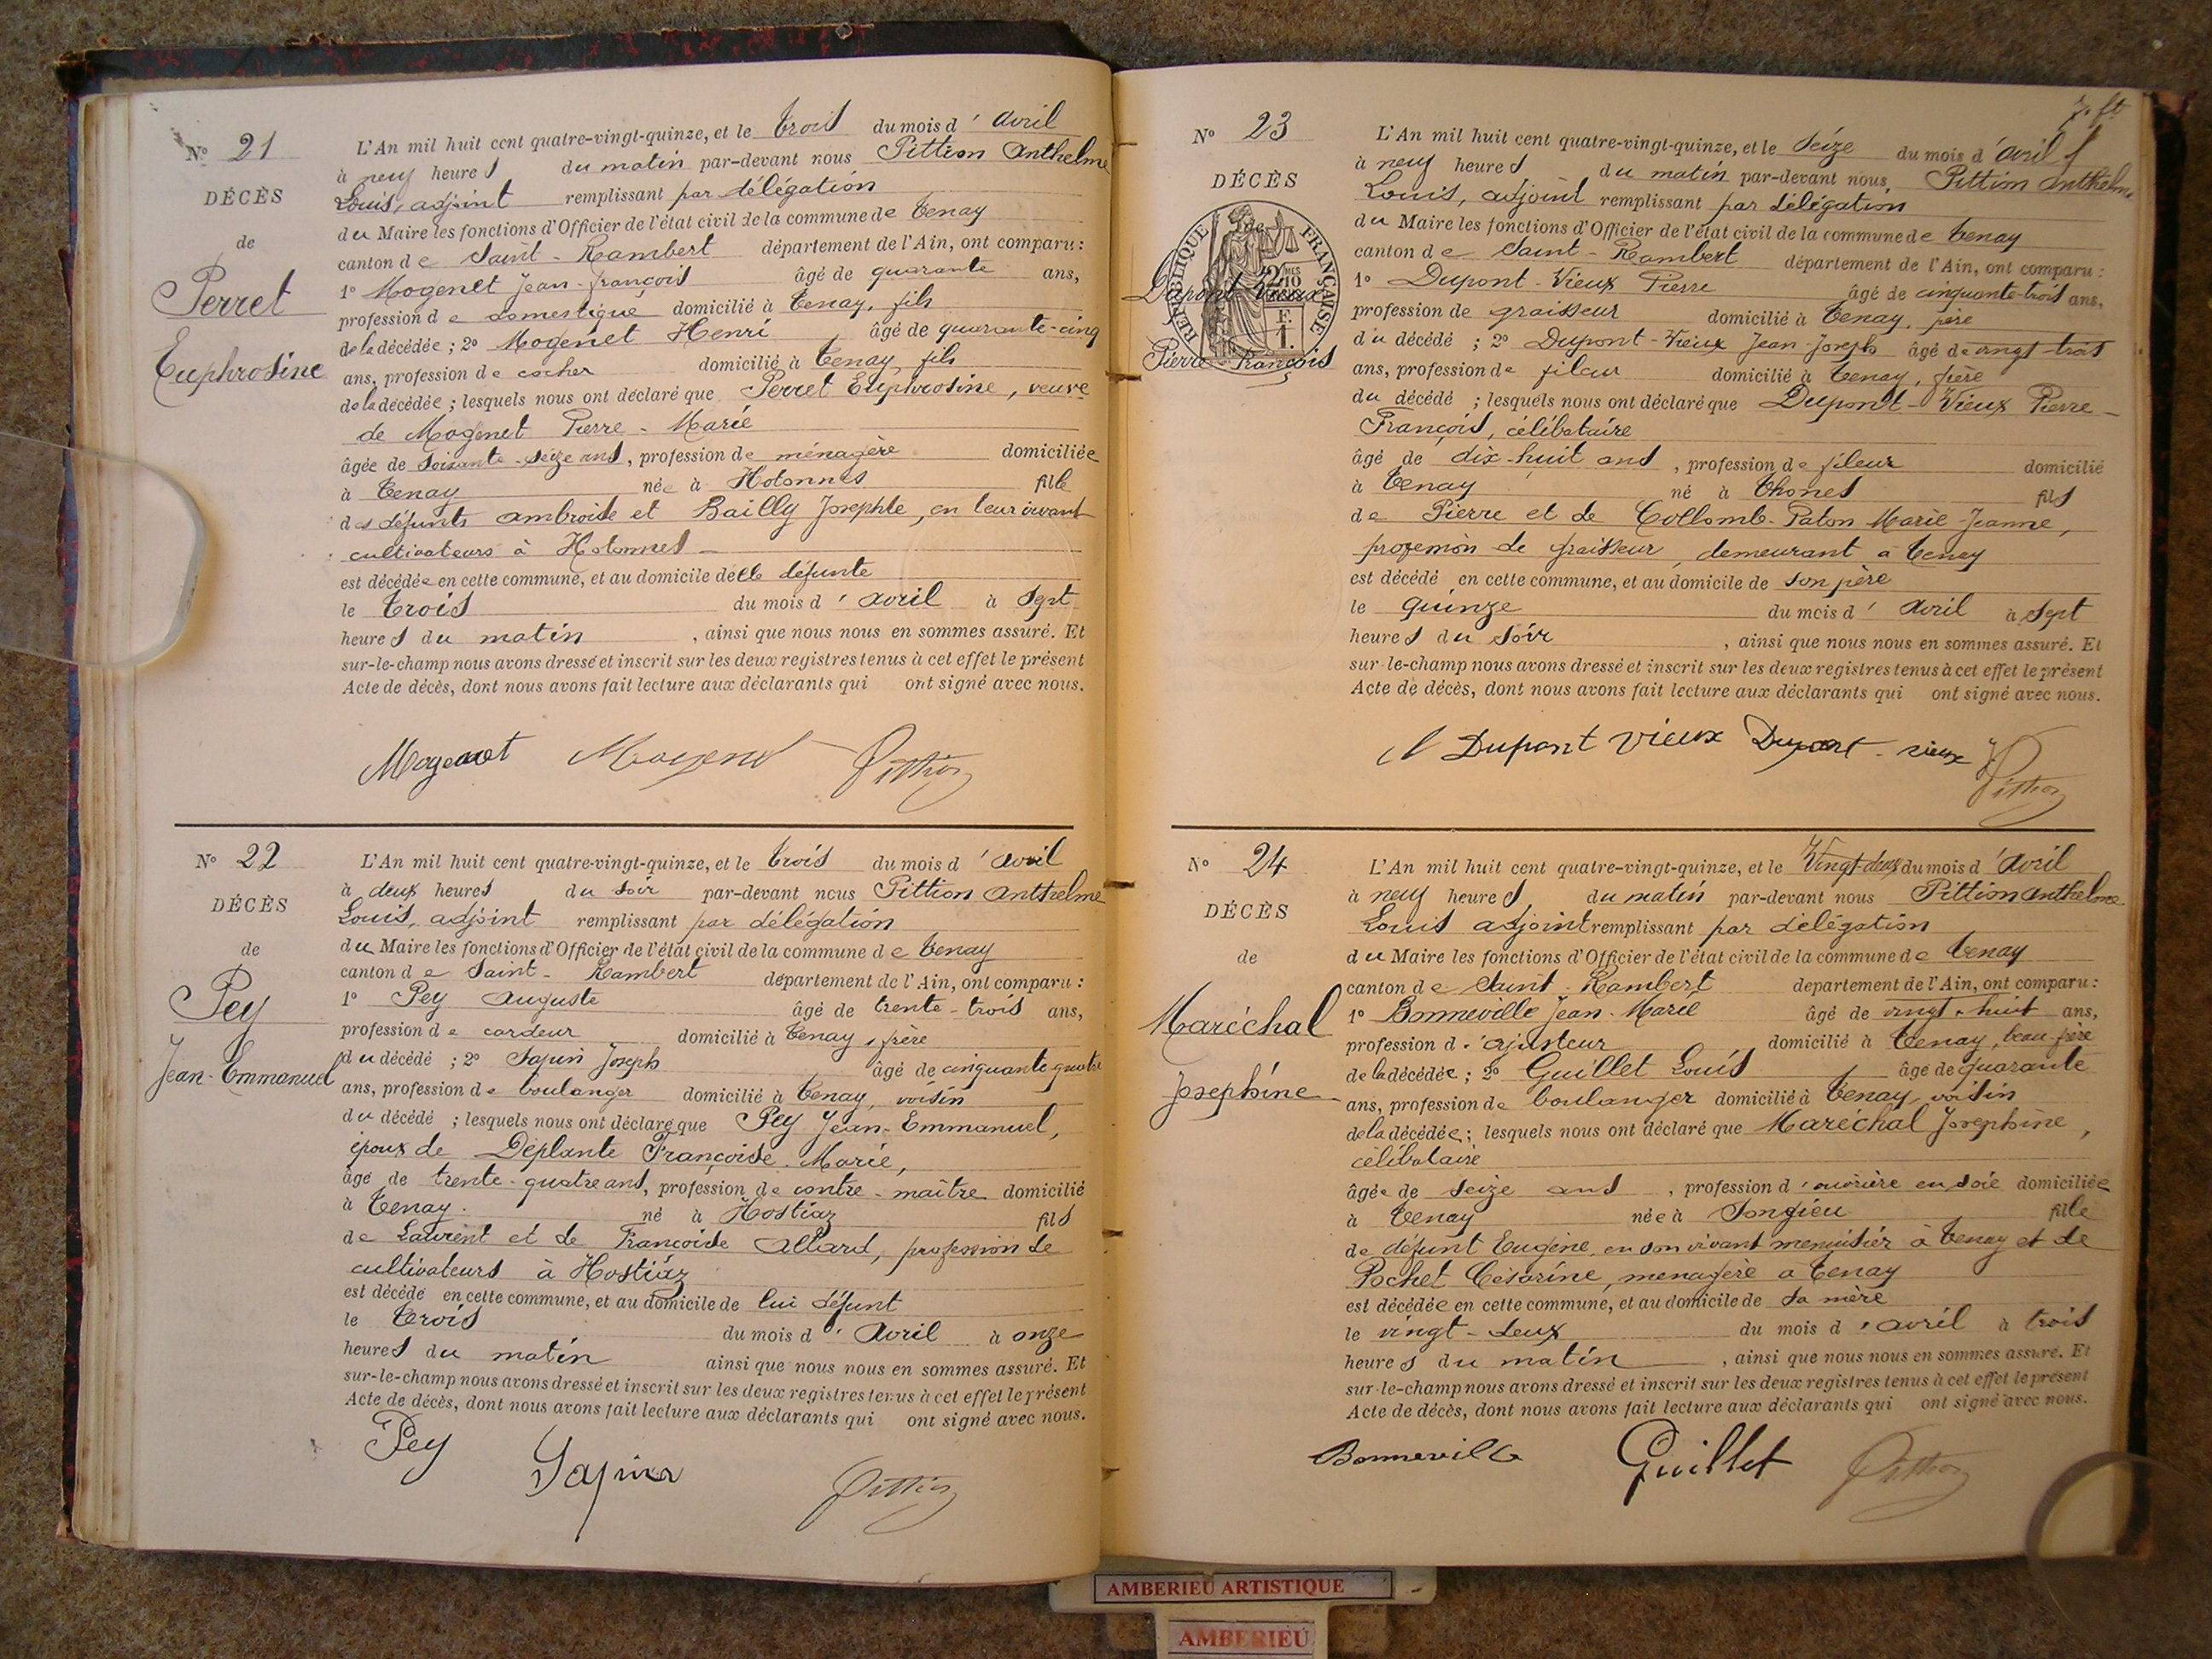 Nº 21
DÉCÈS
de
Perret
Euphrosine
L'An mil huit cent quatre-vingt-quinze, et le trois du mois d'avril
à neuf heures du matin par-devant nous Pittion Anthelme
Louis, adjoint remplissant par délégation
du Maire les fonctions d'Officier de l'état civil de la commune de Tenay
canton de Saint-Rambert département de l'Ain, ont comparu :
1º Mogenet Jean-François âgé de quarante ans,
profession de domestique domicilié à Tenay, fils
de la décédée ; 2º Mogenet Henri âgé de quarante-cinq
ans, profession de cocher domicilié à Tenay, fils
de la décédée ; lesquels nous ont déclaré que Perret Euphrosine, veuve
de Mogenet Pierre-Marie
âgée de soixante-seize ans, profession de ménagère domiciliée
à Tenay née à Hotonnes fille
des défunts Ambroise et Bailly Josephte, en leur vivant
cultivateurs à Hotonnes
est décédée en cette commune, et au domicile de elle défunte
le trois du mois d'avril à sept
heures du matin, ainsi que nous nous en sommes assuré. Et
sur-le-champ nous avons dressé et inscrit sur les deux registres tenus à cet effet le présent
Acte de décès, dont nous avons fait lecture aux déclarants qui ont signé avec nous.
Mogenet Mogenet Pittion
Nº 22
DÉCÈS
de
Pey
Jean-Emmanuel
L'An mil huit cent quatre-vingt-quinze, et le trois du mois d'avril
à deux heures du soir par-devant nous Pittion Anthelme
Louis, adjoint remplissant par délégation
du Maire les fonctions d'Officier de l'état civil de la commune de Tenay
canton de Saint-Rambert département de l'Ain, ont comparu :
1º Pey Auguste âgé de trente-trois ans,
profession de cardeur domicilié à Tenay, frère
du décédé ; 2º Sapin Joseph âgé de cinquante quatre
ans, profession de boulanger domicilié à Tenay, voisin
du décédé ; lesquels nous ont déclaré que Pey Jean-Emmanuel,
époux de Déplante Françoise-Marie,
âgé de trente-quatre ans, profession de contre-maître domicilié
à Tenay. né à Hostiaz fils
de Laurent et de Françoise Allard, profession de
cultivateurs à Hostiaz
est décédé en cette commune, et au domicile de lui défunt
le trois du mois d'avril à onze
heures du matin ainsi que nous nous en sommes assuré. Et
sur-le-champ nous avons dressé et inscrit sur les deux registres tenus à cet effet le présent
Acte de décès, dont nous avons fait lecture aux déclarants qui ont signé avec nous.
Pey Sapin Pittion
Nº 23
DÉCÈS
de
RÉPUBLIQUE FRANÇAISE
Dupont-Vieux
Pierre-François
L'An mil huit cent quatre-vingt-quinze, et le seize du mois d'avril
à neuf heures du matin par-devant nous, Pittion Anthelme
Louis, adjoint remplissant par délégation
du Maire les fonctions d'Officier de l'état civil de la commune de Tenay
canton de Saint-Rambert département de l'Ain, ont comparu :
1º Dupont-Vieux Pierre âgé de cinquante-trois ans,
profession de graisseur domicilié à Tenay, père
du décédé ; 2º Dupont-Vieux Jean-Joseph âgé de vingt-trois
ans, profession de fileur domicilié à Tenay, frère
du décédé ; lesquels nous ont déclaré que Dupont-Vieux Pierre-
François, célibataire
âgé de dix-huit ans, profession de fileur domicilié
à Tenay né à Thones fils
de Pierre et de Collomb-Paton Marie-Jeanne,
profession de graisseur, demeurant à Tenay
est décédé en cette commune, et au domicile de son père
le quinze du mois d'avril à sept
heures du soir, ainsi que nous nous en sommes assuré. Et
sur-le-champ nous avons dressé et inscrit sur les deux registres tenus à cet effet le présent
Acte de décès, dont nous avons fait lecture aux déclarants qui ont signé avec nous.
Dupont vieux Dupont-vieux Pittion
Nº 24
DÉCÈS
de
Maréchal
Josephine
L'An mil huit cent quatre-vingt-quinze, et le Vingt-deux du mois d'avril
à neuf heures, du matin par-devant nous Pittion Anthelme
Louis adjoint remplissant par délégation
du Maire les fonctions d'Officier de l'état civil de la commune de Tenay
canton de Saint-Rambert département de l'Ain, ont comparu :
1º Bonneville Jean-Marie âgé de vingt-huit ans,
profession d'ajusteur domicilié à Tenay, beau-frère
de la décédée ; 2º Guillet Louis âgé de quarante
ans, profession de boulanger domicilié à Tenay, voisin
de la décédée ; lesquels nous ont déclaré que Maréchal Josephine,
célibataire
âgée de seize ans, profession d'ouvrière en soie domiciliée
à Tenay née à Songieu fille
de défunt Eugène, en son vivant menuisier à Tenay et de
Pochet Césarine, menagère à Tenay
est décédée en cette commune, et au domicile de sa mère
le vingt-deux du mois d'avril à trois
heures du matin, ainsi que nous nous en sommes assuré. Et
sur-le-champ nous avons dressé et inscrit sur les deux registres tenus à cet effet le présent
Acte de décès, dont nous avons fait lecture aux déclarants qui ont signé avec nous.
Bonneville Guillet Pittion
AMBERIEU ARTISTIQUE
AMBERIEU